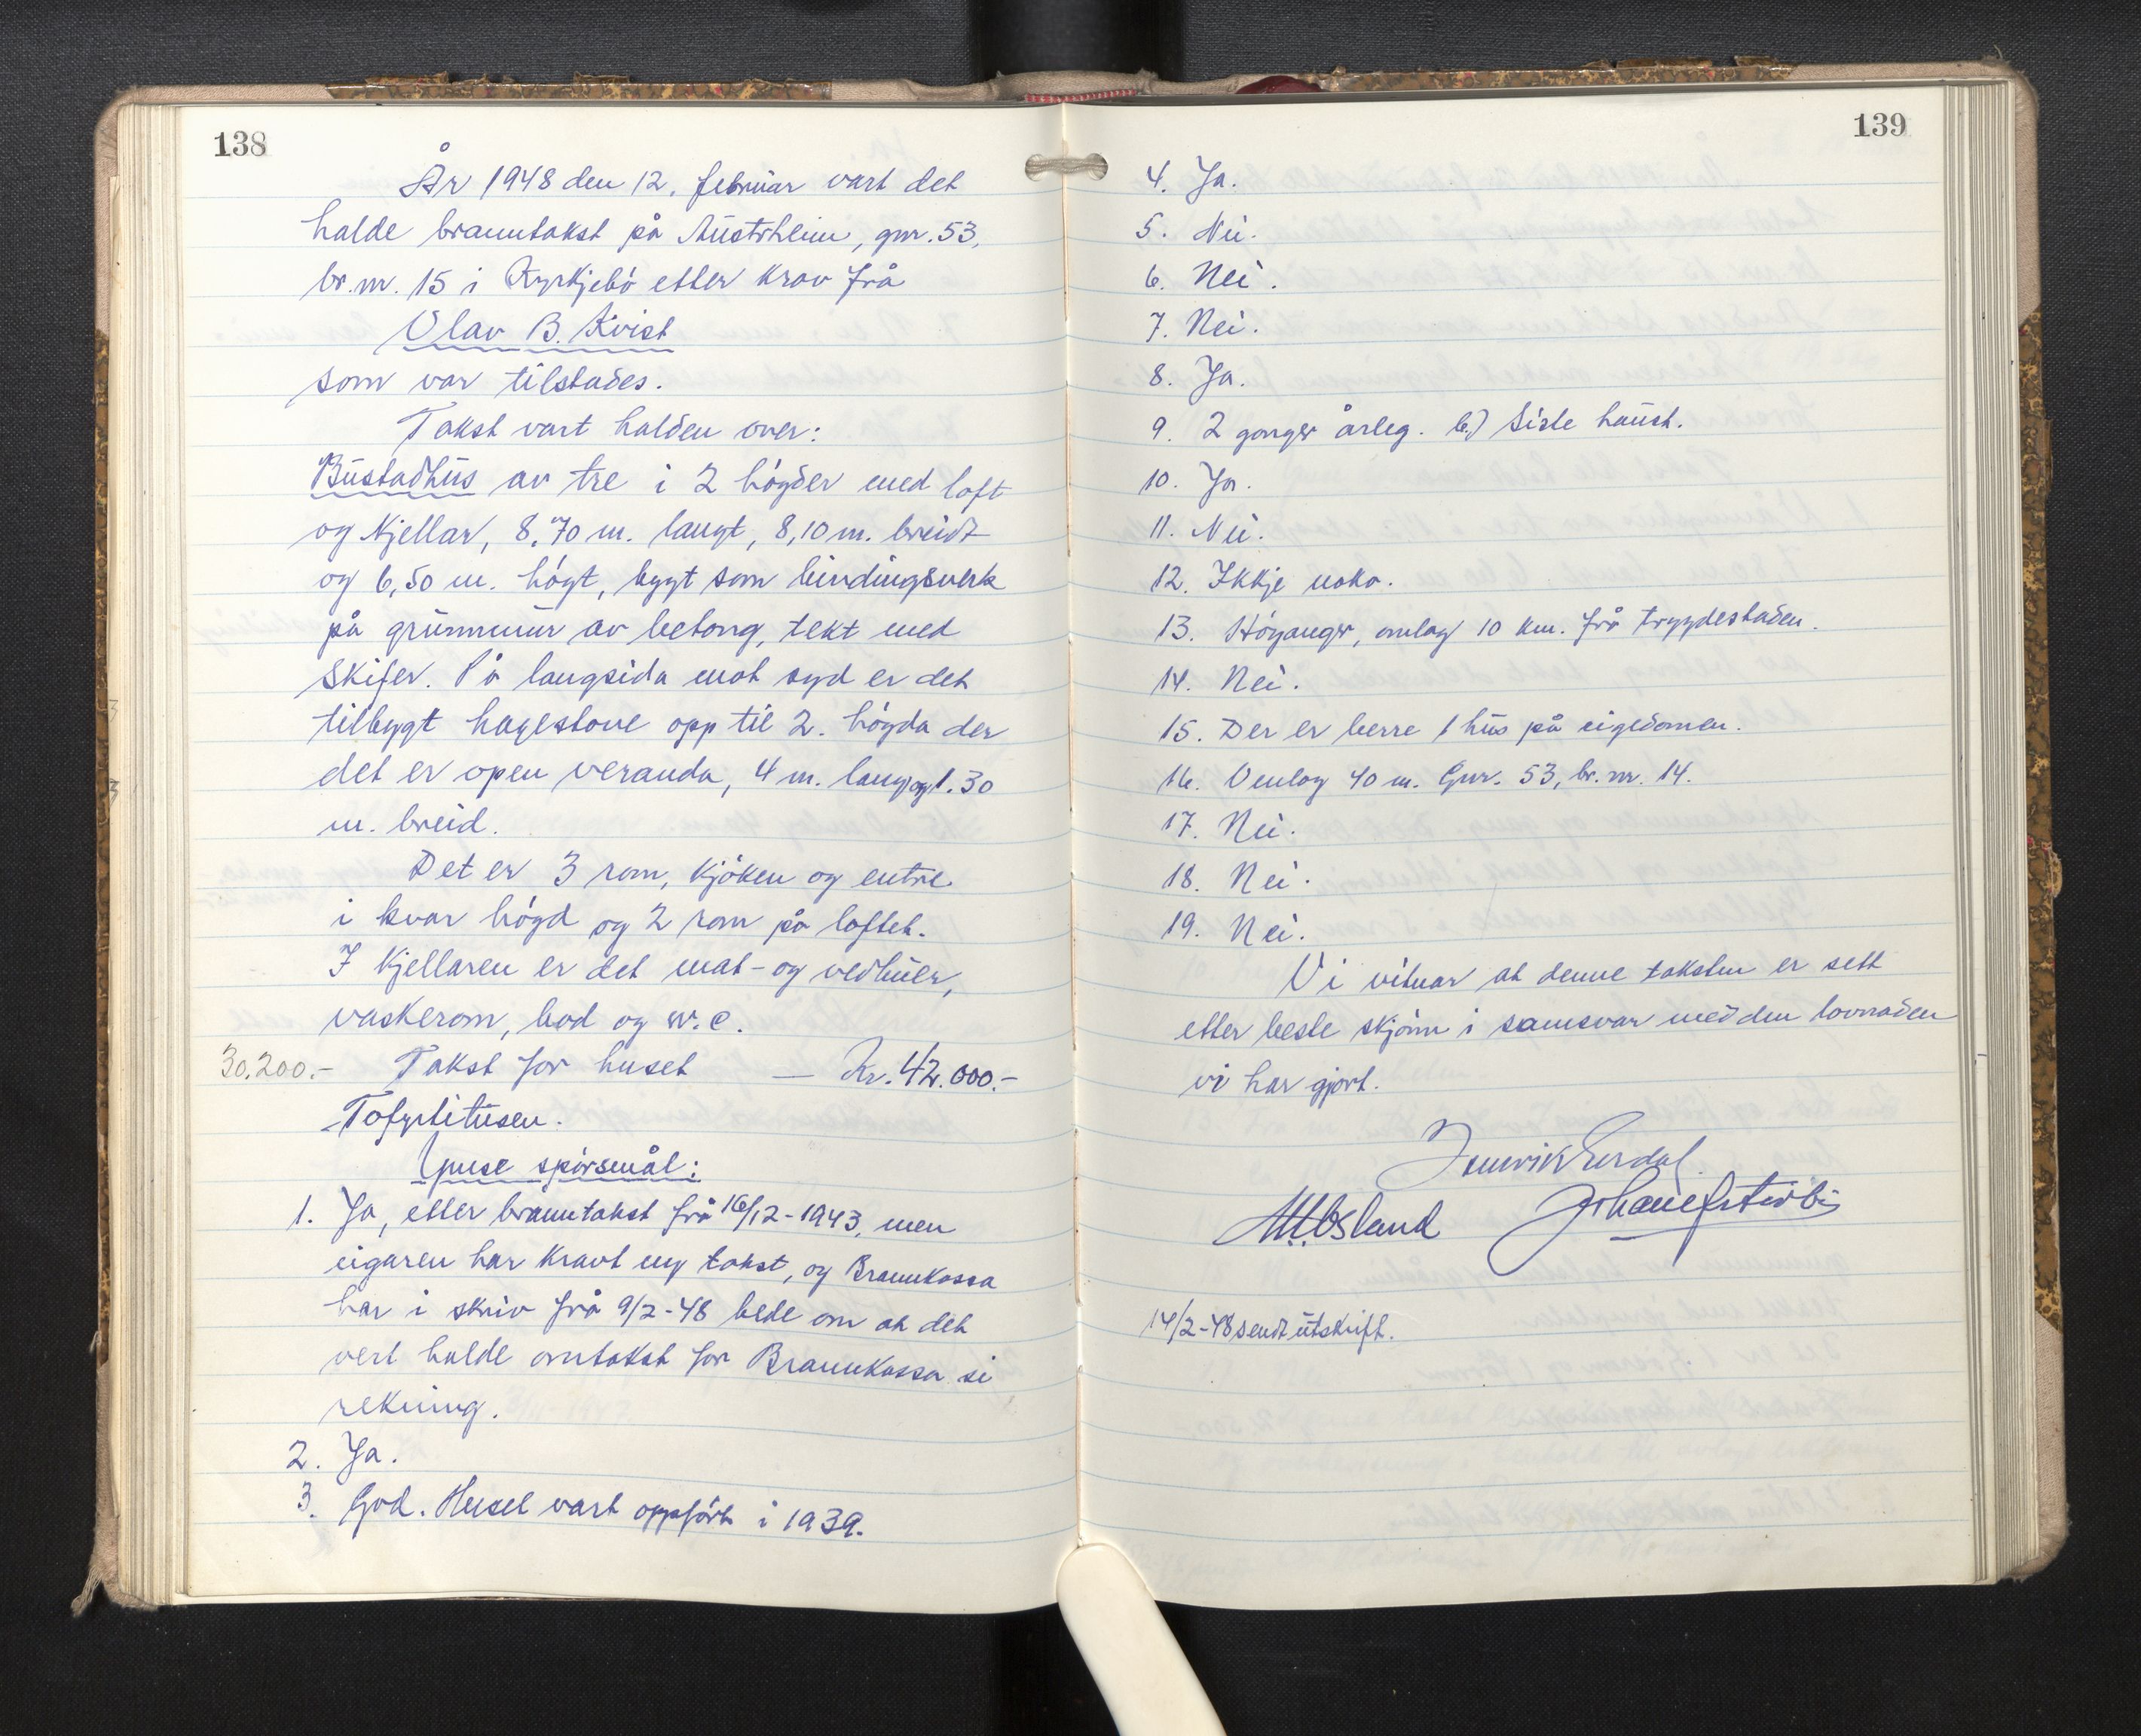 138
År 1948 den 12. februar vart det
halde branntakst på Austrheim, gnr. 53,
br.nr. 15 i Kyrkjebö etter krav frå
Olav B. Kvist
som var tilstades.
Takst vart halden over:
Bustadhus av tre i 2 högder med loft
og kjellar, 8,70 m. langt, 8,10 m. breidt
og 6,50 m. högt, bygt som bindingsverk
på grunnmur av betong, tekt med
skifer. På langsida mot syd er det
tilbygt hagestove opp til 2. högda der
det er open veranda, 4 m. lang og 1.30
m. breid.
Det er 3 rom, kjöken og entre
i kvar högd og 2 rom på loftet.
I kjellaren er det mat- og vedbuer,
vaskerom, bod og w.c.
30.200.- Takst for huset — Kr. 42.000.-
Tofyrtitusen.
Ymse spörsmål:
1. Ja, etter branntakst frå 16/12-1943, men
eigaren har kravt ny takst, og Brannkassa
har i skriv frå 9/2-48 bede om at det
vert halde omtakst for Brannkassa si
rekning.
2. Ja.
3. God. Huset vart oppfört i 1939.
139
4. Ja.
5. Nei.
6. Nei.
7. Nei.
8. Ja.
9. 2 gonger årleg. b.) Siste haust.
10. Ja.
11. Nei.
12. Ikkje noko.
13. Höyanger, omlag 10 km. frå trygdestaden.
14. Nei.
15. Der er berre 1 hus på eigedomen.
16. Omlag 40 m. Gnr. 53, br. nr. 14.
17. Nei.
18. Nei.
19. Nei.
Vi vitnar at denne taksten er sett
etter beste skjönn i samsvar med den lovnaden
vi har gjort.
14/2-48 sendt utskrift.